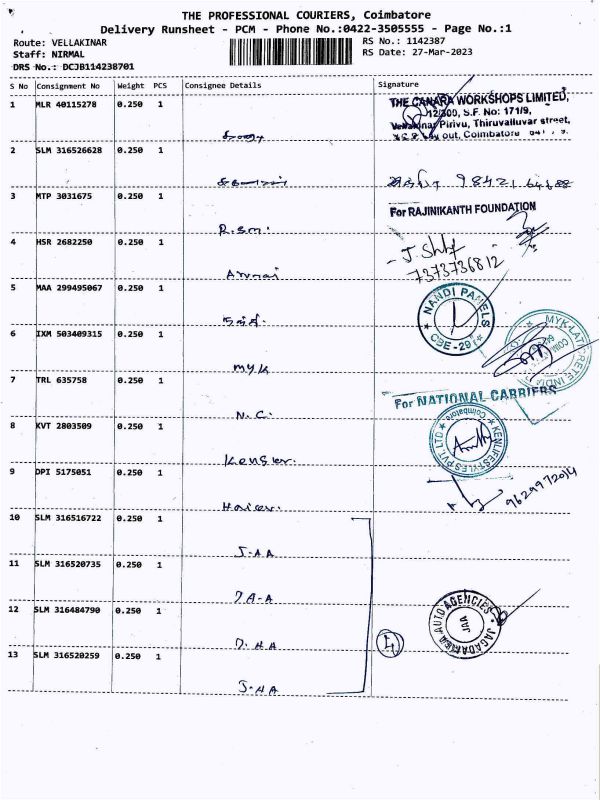 THE PROFESSIONAL COURIERS, Coimbatore
Delivery Runsheet - PCM - Phone No.:0422-3505555 - Page No.:1
Route: VELLAKINAR
Staff: NIRMAL
DRS No.: DCJB114238701
RS No.: 1142387
RS Date: 27-Mar-2023
S No Consignment No Weight PCS Consignee Details Signature
1 MLR 40115278 0.250 1
THE CANARA WORKSHOPS LIMITED,
12/300, S.F. No: 171/9,
Vellakinar Pirivu, Thiruvalluvar street,
Lay out, Coimbatore
2 SLM 316526628 0.250 1
3 MTP 3031675 0.250 1 R.S.M.
For RAJINIKANTH FOUNDATION
4 HSR 2682250 0.250 1 Annai
7373736812
5 MAA 299495067 0.250 1
NANDI PANELS
CBE - 29
6 IXM 503409315 0.250 1 MYK
7 TRL 635758 0.250 1 N.C.
For NATIONAL CARRIERS
8 KVT 2803509 0.250 1
KENLIFESTYLES PVT. LTD
Coimbatore
9 DPI 5175051 0.250 1
9629972014
10 SLM 316516722 0.250 1 J-AA
11 SLM 316520735 0.250 1 JA-A
12 SLM 316484790 0.250 1
4
AUTO AGENCIES
JAA
13 SLM 316520259 0.250 1